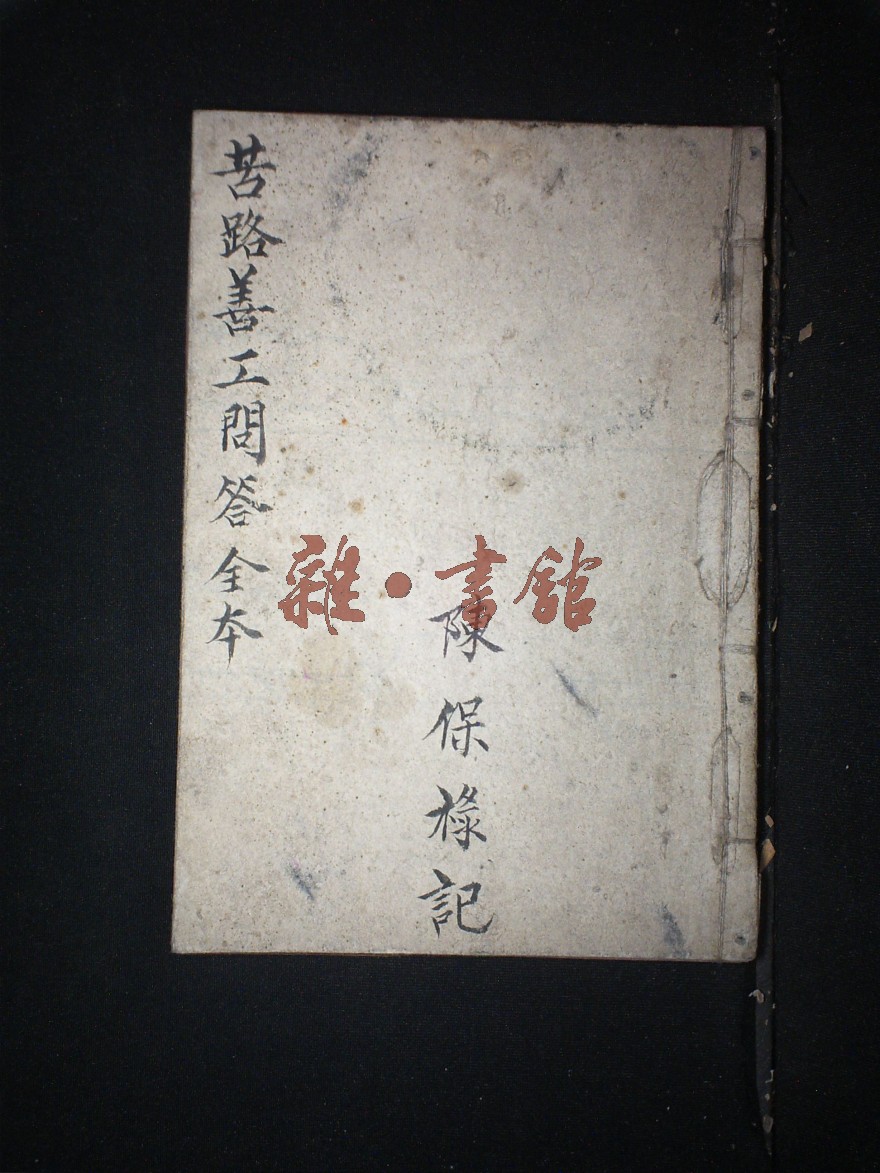 苦路善工問答全本
雜·書館
陳保祿記